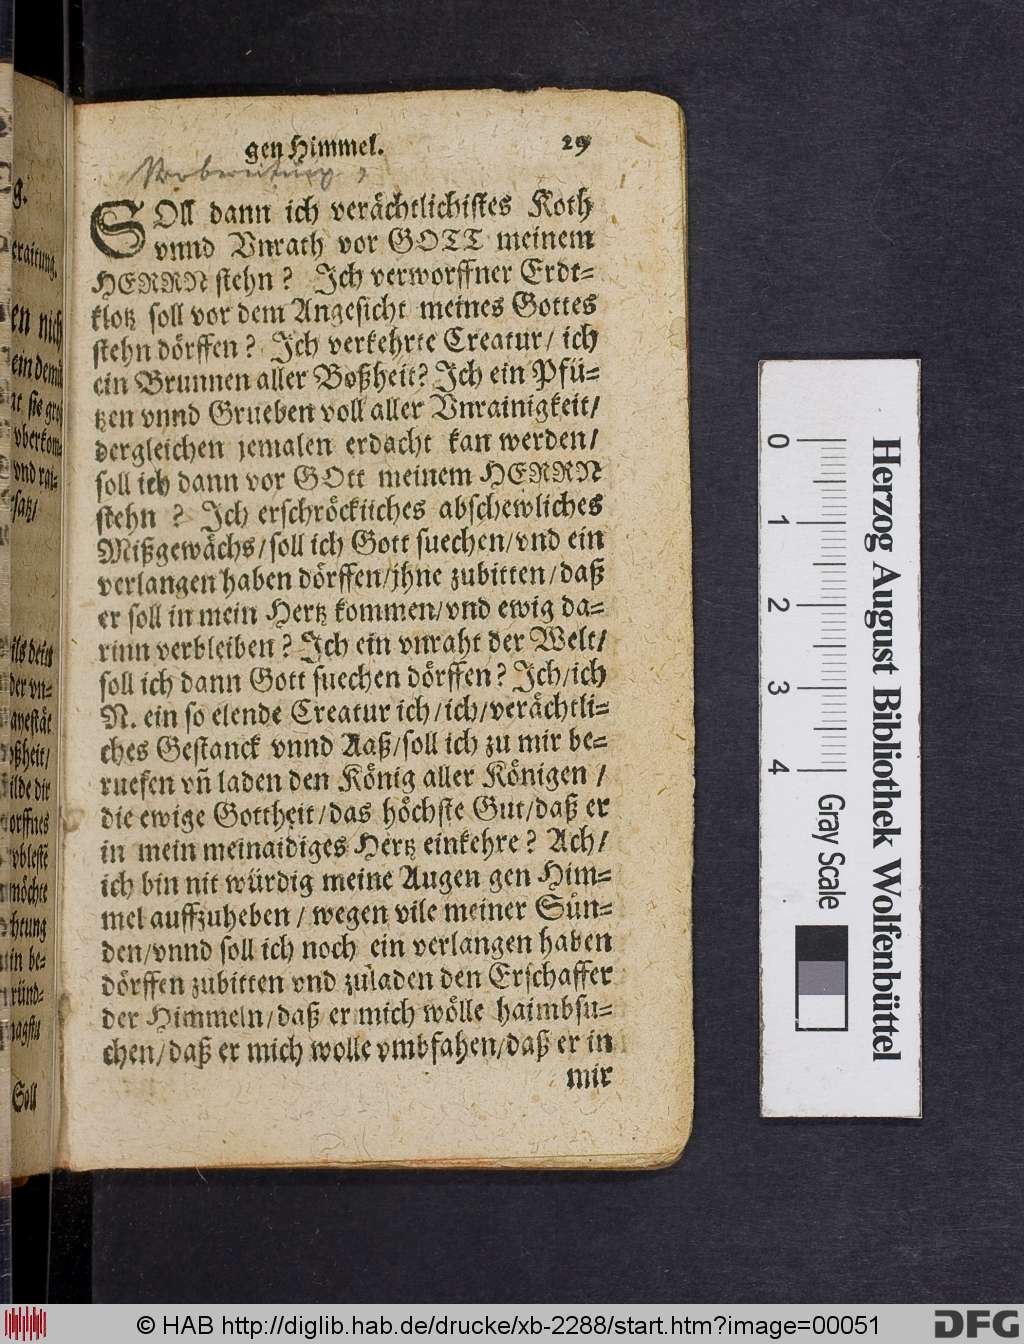 gen Himmel. 29
SOll dann ich verächtlichistes Koth
vnnd Vnrath vor GOTT meinem
HERRN stehn? Ich verworffner Erdt=
klotz soll vor dem Angesicht meines Gottes
stehn dörffen? Ich verkehrte Creatur/ ich
ein Brunnen aller Boßheit? Ich ein Pfü=
tzen vnnd Grueben voll aller Vnrainigkeit/
dergleichen jemalen erdacht kan werden/
soll ich dann vor GOtt meinem HERRN
stehn ? Ich erschröckliches abschewliches
Mißgewächs/soll ich Gott suechen/vnd ein
verlangen haben dörffen/jhne zubitten/daß
er soll in mein Hertz kommen/vnd ewig da=
rinn verbleiben? Ich ein vnraht der Welt/
soll ich dann Gott suechen dörffen? Ich/ich
N. ein so elende Creatur ich/ich/verächtli=
ches Gestanck vnnd Aaß/soll ich zu mir be=
ruefen vñ laden den König aller Königen /
die ewige Gottheit/das höchste Gut/daß er
in mein meinaidiges Hertz einkehre? Ach/
ich bin nit würdig meine Augen gen Him=
mel auffzuheben / wegen vile meiner Sün=
den/vnnd soll ich noch ein verlangen haben
dörffen zubitten vnd zuladen den Erschaffer
der Himmeln/daß er mich wölle haimbsu=
chen/daß er mich wolle vmbfahen/daß er in
mir
g.
eraitung.
en nich
ein demü
vberkom
vnd rai=
satz/
ils dein
der vn=
ayestät
oßheit/
ilde dir
orffnes
vbleste
möchte
htung
in be=
ründ=
nagstu
Soll
0 1 2 3 4
Gray Scale
Herzog August Bibliothek Wolfenbüttel
© HAB http://diglib.hab.de/drucke/xb-2288/start.htm?image=00051
DFG